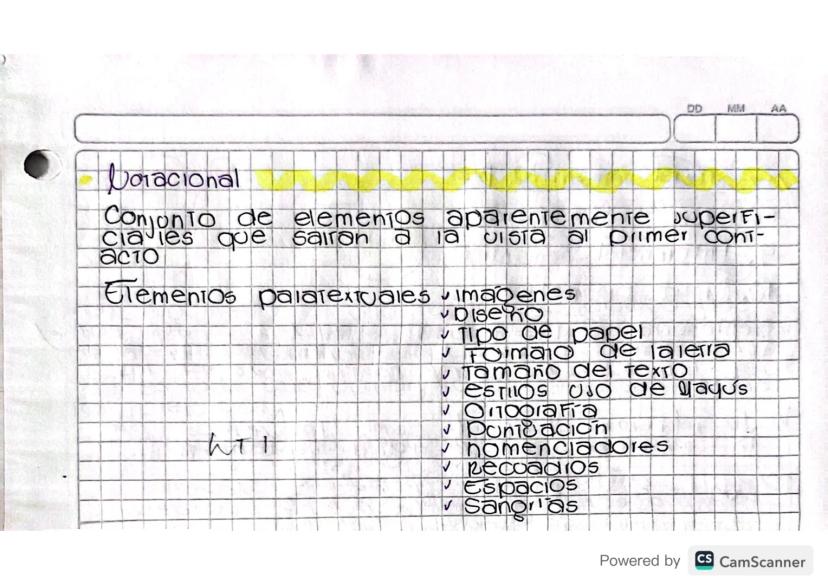 DD MM AA
Notacional
Conjunto de elementos aparentemente superfi-
ciales que saltan a la vista al primer cont-
acto
Elementos paratextuales ✓ imágenes
✓ Diseño
✓ Tipo de papel
✓ Formato de la letra
✓ Tamaño del texto
✓ estilos uso de Mayus
✓ Ortografía
✓ Puntuación
✓ nomencladores
✓ Recuadros
✓ Espacios
✓ Sangrías
Powered by CS CamScanner